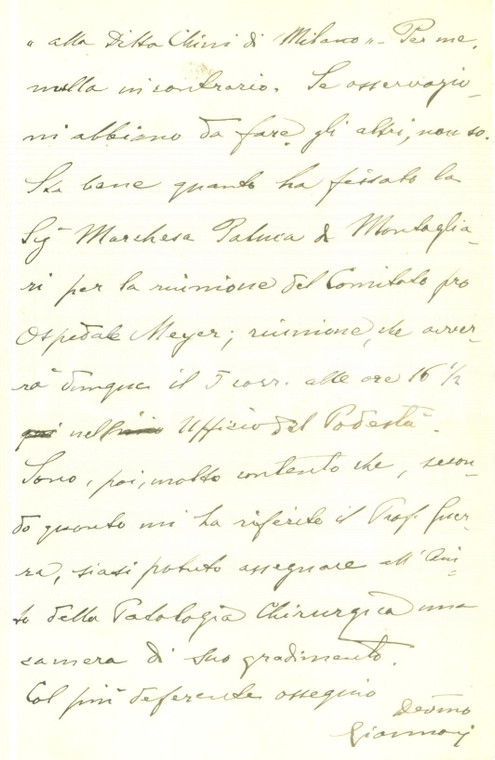 " alla Ditta Chini di Milano „ - Per me,
nulla in contrario. Se osservazio-
ni abbiano da fare gli altri, non so.
Sta bene quanto ha fissato la
Sigᵃ Marchesa Patuca di Montaglia-
ri per la riunione del Comitato pro
Ospedale Meyer; riunione, che avver-
rà dunque il 5 corr. alle ore 16 1/2
nell' Ufficio del Podestà.
Sono, poi, molto contento che, secon-
do quanto mi ha riferito il Prof. Guer-
ra, siasi potuto assegnare all' Aiu-
to della Patologia Chirurgica una
camera di suo gradimento.
Col più deferente ossequio
Devᵐᵒ